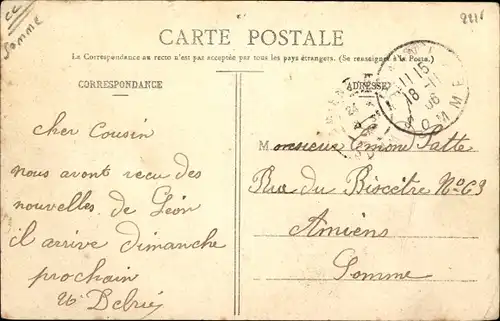 cc
Somme
CARTE POSTALE
La Correspondance au recto n'est pas acceptée par tous les pays étrangers. (Se renseigner à la Poste.)
CORRESPONDANCE
ADRESSE
11 15
18 - 11
06
SOMME
cher Cousin
nous avont recu des
nouvelles de Léon
il arrive dimanche
prochain
Monsieur Emond Patte
Rue du Biocètre No 69
Amiens
Somme